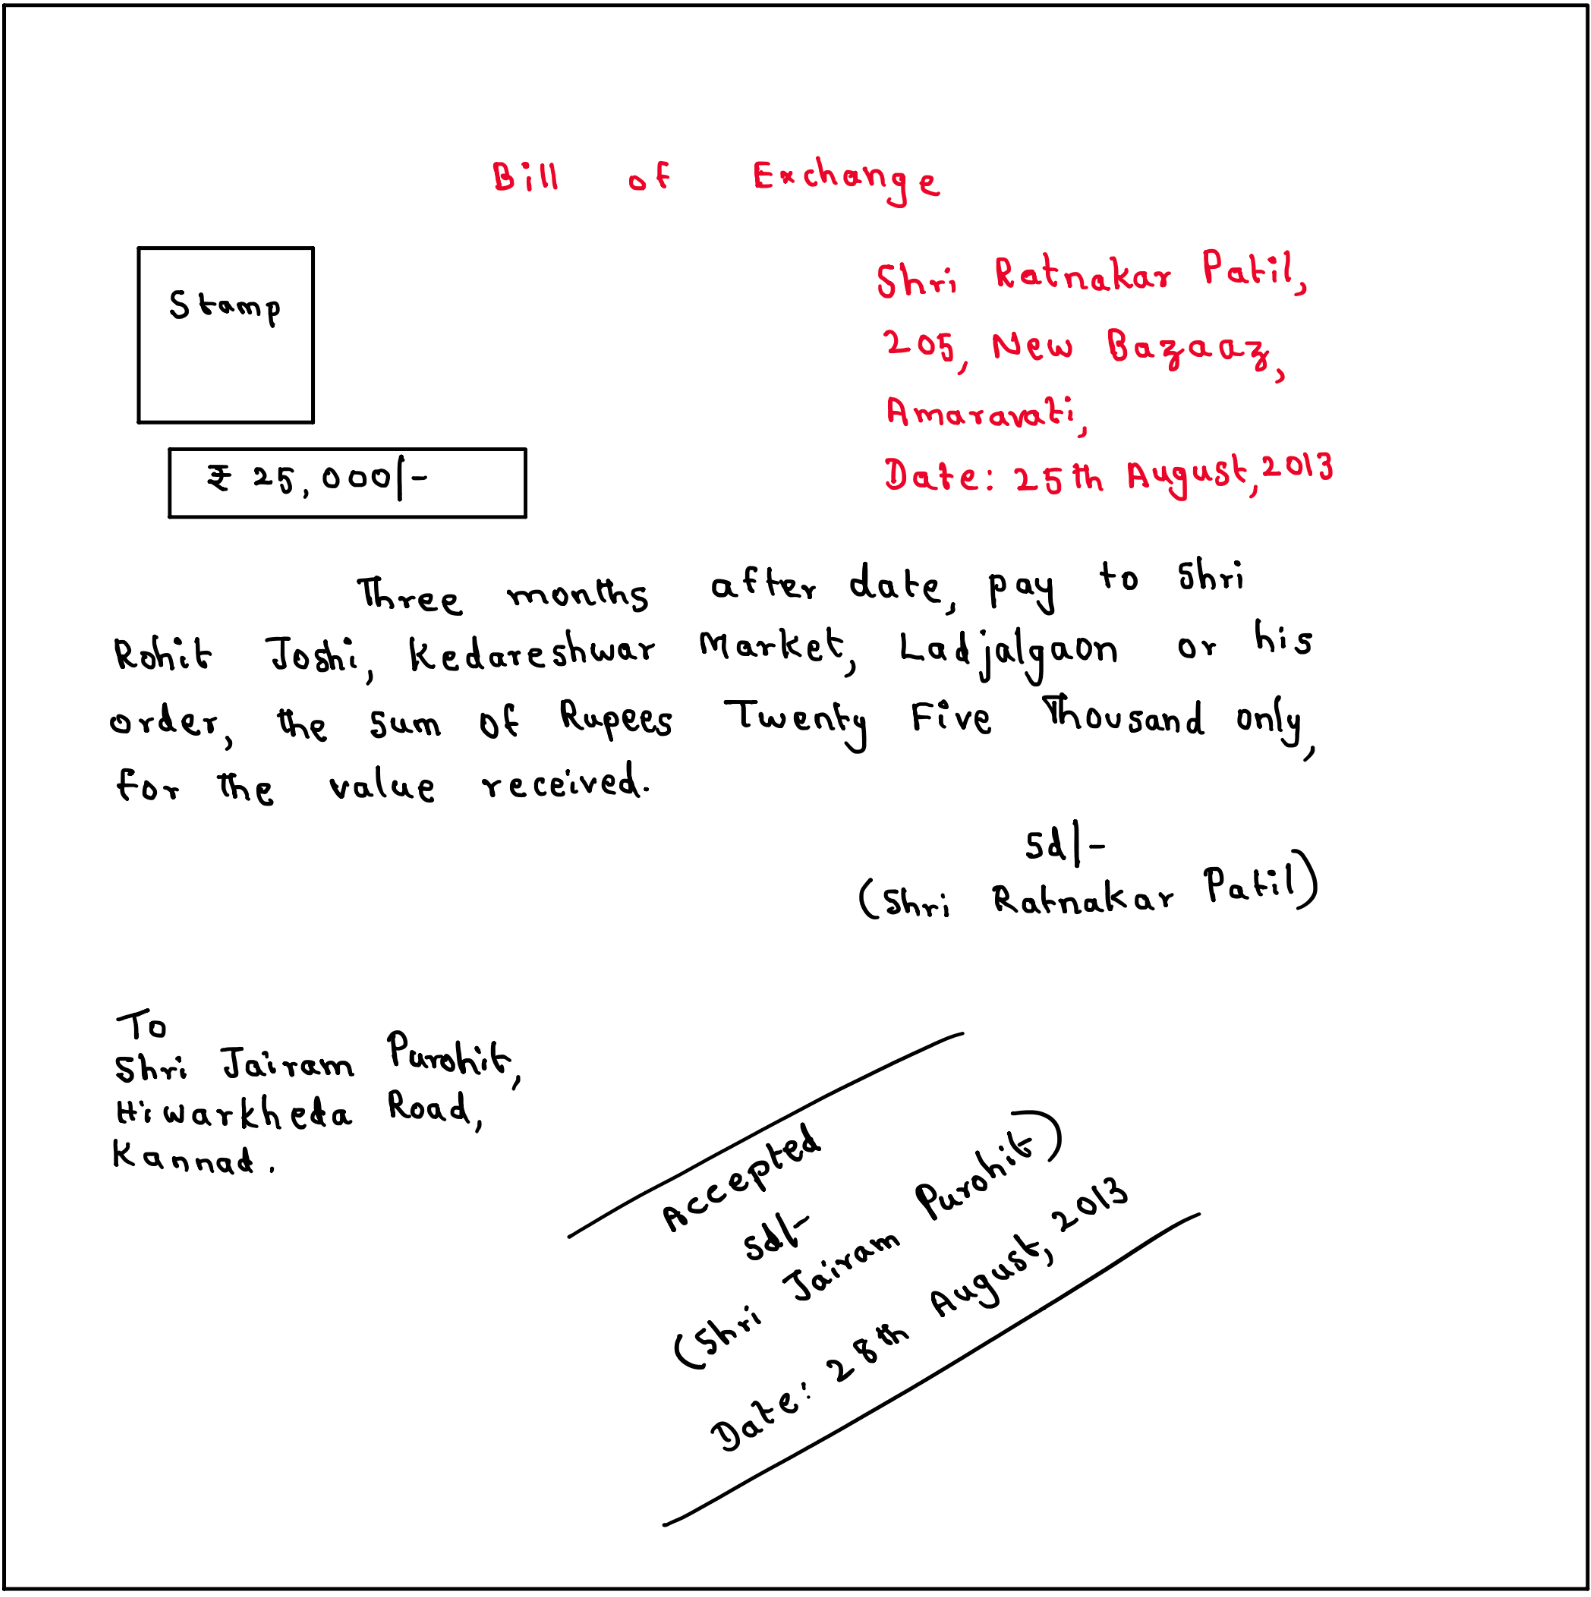 Bill of Exchange
Stamp
Shri Ratnakar Patil,
205, New Bazaaz,
Amaravati,
Date: 25th August, 2013
₹ 25,000/-
Three months after date, pay to Shri
Rohit Joshi, Kedareshwar Market, Ladjalgaon or his
order, the sum of Rupees Twenty Five Thousand only,
for the value received.
Sd/-
(Shri Ratnakar Patil)
To
Shri Jairam Purohit,
Hiwarkheda Road,
Kannad.
Accepted
Sd/-
(Shri Jairam Purohit)
Date: 28th August, 2013